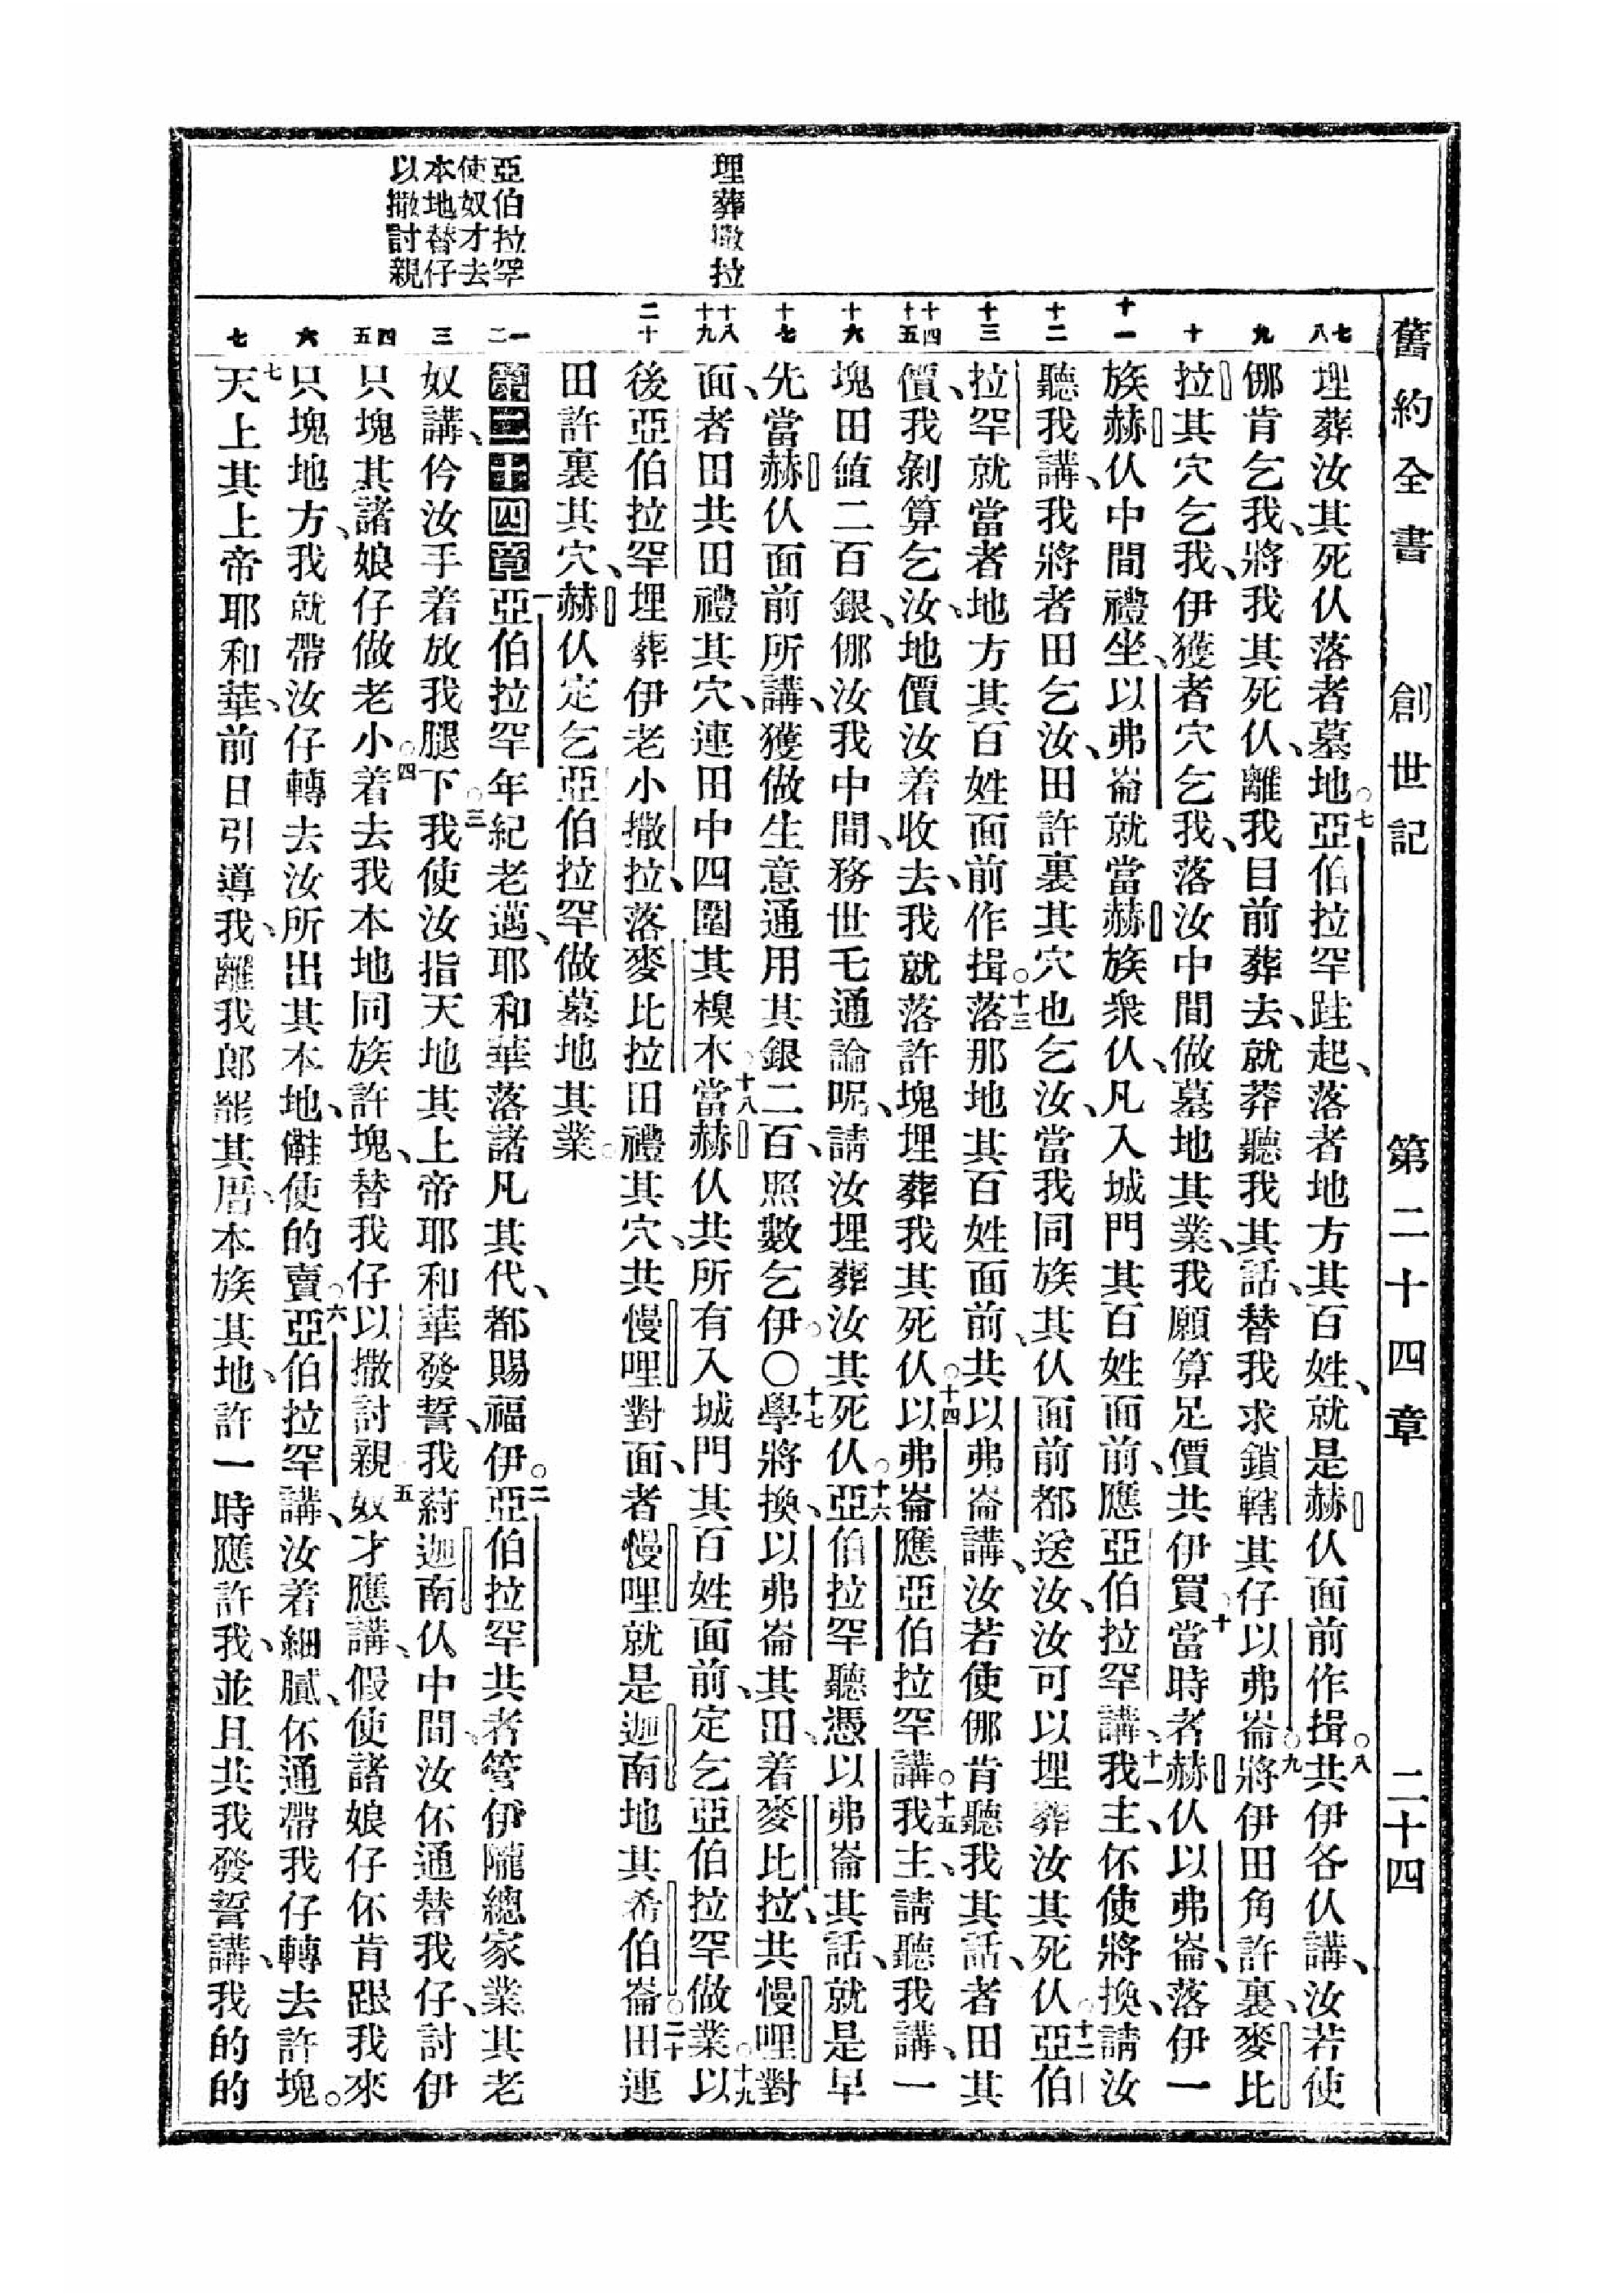 舊約全書 創世記 第二十四章 二十四
埋葬撒拉
亞伯拉罕
使奴才去
本地替仔
以撒討親
七 八
九
十
十一
十二
十三
十四 十五
十六
十七
十八 十九
二十
一 二
三
四 五
六
七
埋葬汝其死仈落者墓地。七亞伯拉罕跬起、落者地方其百姓、就是赫仈面前作揖。八共伊各仈講、汝若使
𠆧肯乞我、將我其死仈、離我目前葬去、就莽聽我其話、替我求鎖轄其仔以弗崙。九將伊田角許裏、麥比
拉其穴乞我、伊獲者穴乞我、落汝中間做墓地其業、我願算足價共伊買。十當時者赫仈以弗崙、落伊一
族赫仈中間禮坐、以弗崙就當赫族衆仈、凡入城門其百姓面前、應亞伯拉罕講、十一我主、伓使將換、請汝
聽我講、我將者田乞汝、田許裏其穴也乞汝、當我同族其仈面前都送汝、汝可以埋葬汝其死仈。十二亞伯
拉罕就當者地方其百姓面前作揖。十三落那地其百姓面前、共以弗崙講、汝若使𠆧肯聽我其話、者田其
價、我剝算乞汝、地價汝着收去、我就落許塊埋葬我其死仈。十四以弗崙應亞伯拉罕講。十五我主、請聽我講、一
塊田値二百銀、𠆧汝我中間、務世乇通論呢、請汝埋葬汝其死仈。十六亞伯拉罕聽憑以弗崙其話、就是早
先當赫仈面前所講、獲做生意通用其銀二百、照數乞伊。〇十七學將換、以弗崙其田、着麥比拉、共慢哩對
面、者田共田禮其穴、連田中四圍其樹木、十八當赫仈共所有入城門其百姓面前、定乞亞伯拉罕做業。十九以
後亞伯拉罕埋葬伊老小撒拉、落麥比拉田禮其穴、共慢哩對面、者慢哩就是迦南地其希伯崙。二十田連
田許裏其穴、赫仈定乞亞伯拉罕做墓地其業。
第二十四章 一亞伯拉罕年紀老邁、耶和華落諸凡其代、都賜福伊。二亞伯拉罕共者管伊隴總家業其老
奴講、伶汝手着放我腿下。三我使汝指天地其上帝耶和華發誓、我蒔迦南仈中間、汝伓通替我仔、討伊
只塊其諸娘仔做老小。四着去我本地同族許塊、替我仔以撒討親。五奴才應講、假使諸娘仔伓肯跟我來
只塊地方、我就帶汝仔轉去汝所出其本地、𠍲使的賣。六亞伯拉罕講、汝着細膩、伓通帶我仔轉去許塊。
七天上其上帝耶和華、前日引導我、離我郎罷其厝、本族其地、許一時應許我、並且共我發誓講、我的的